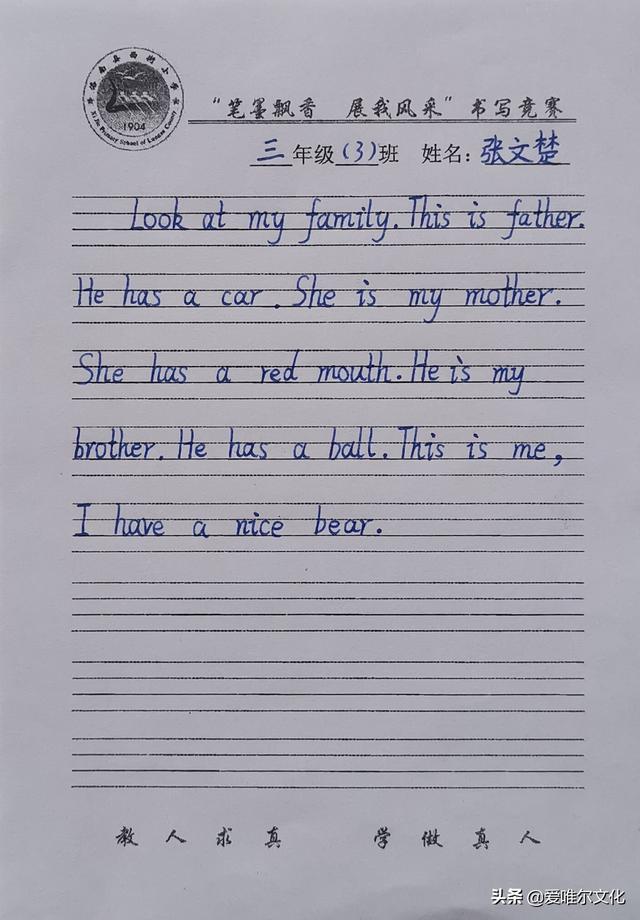 1904
Xi Jie Primary School of Luonan County
“笔墨飘香 展我风采”书写竞赛
三年级(3)班 姓名:张文楚
Look at my family. This is father.
He has a car. She is my mother.
She has a red mouth. He is my
brother. He has a ball. This is me,
I have a nice bear.
教人求真 学做真人
头条 @爱唯尔文化